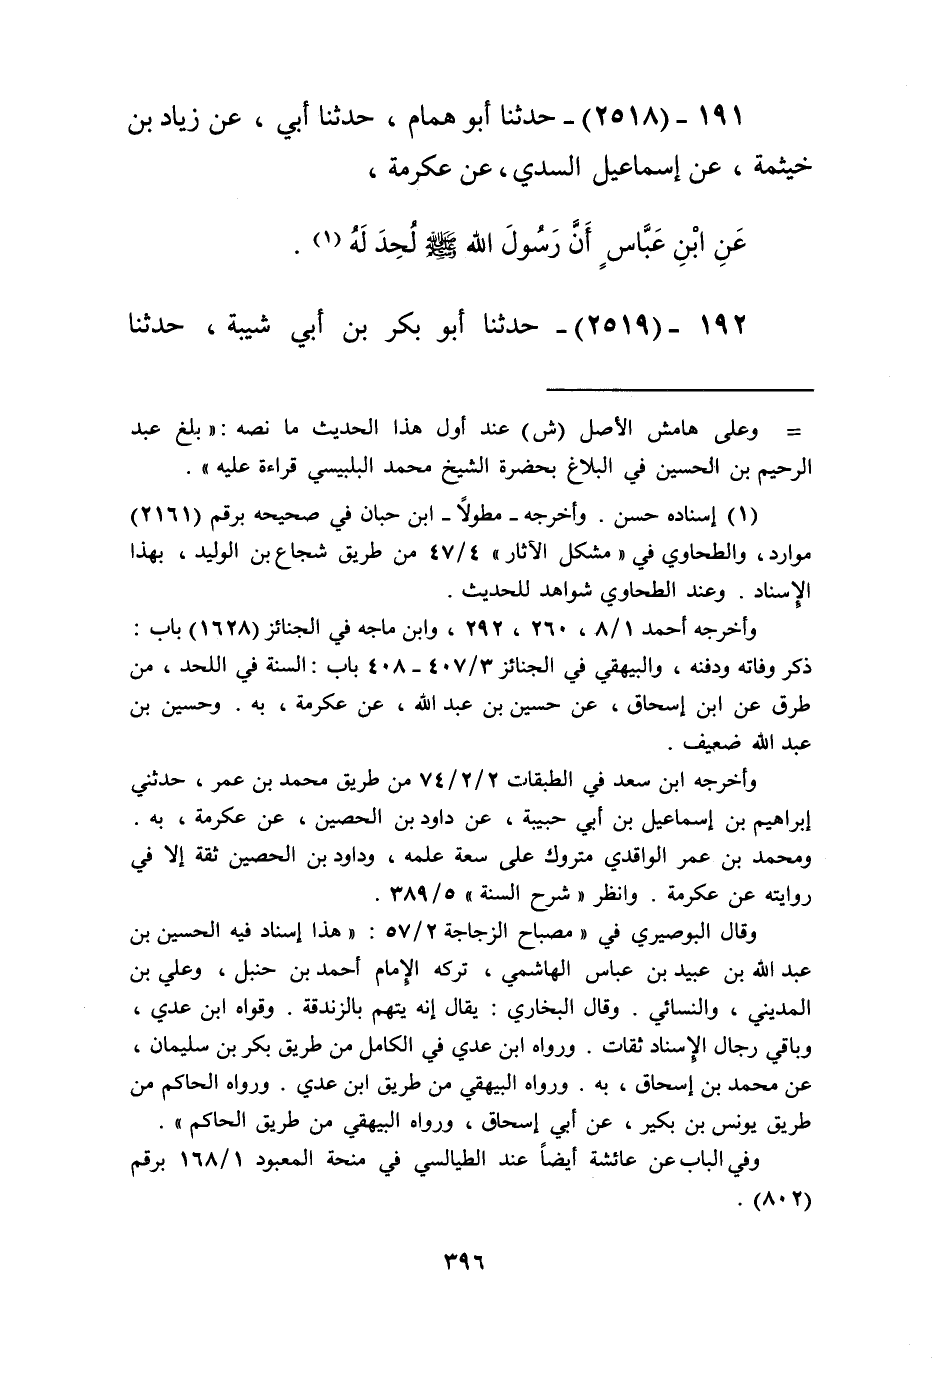 ١٩١ - (٢٥١٨) - حدثنا أبو همام ، حدثنا أبي ، عن زياد بن
خيثمة ، عن إسماعيل السدي ، عن عكرمة ،
عَنِ ابْنِ عَبَّاسٍ أَنَّ رَسُولَ الله ﷺ لُحِدَ لَهُ (١) .
١٩٢ - (٢٥١٩) - حدثنا أبو بكر بن أبي شيبة ، حدثنا
= وعلى هامش الأصل (ش) عند أول هذا الحديث ما نصه : « بلغ عبد
الرحيم بن الحسين في البلاغ بحضرة الشيخ محمد البلبيسي قراءة عليه » .
(١) إسناده حسن . وأخرجه - مطولاً - ابن حبان في صحيحه برقم (٢١٦١)
موارد ، والطحاوي في « مشكل الآثار » ٤٧/٤ من طريق شجاع بن الوليد ، بهذا
الإسناد . وعند الطحاوي شواهد للحديث .
وأخرجه أحمد ٨/١ ، ٢٦٠ ، ٢٩٢ ، وابن ماجه في الجنائز (١٦٢٨) باب :
ذكر وفاته ودفنه ، والبيهقي في الجنائز ٤٠٧/٣ - ٤٠٨ باب : السنة في اللحد ، من
طرق عن ابن إسحاق ، عن حسين بن عبد الله ، عن عكرمة ، به . وحسين بن
عبد الله ضعيف .
وأخرجه ابن سعد في الطبقات ٧٤/٢/٢ من طريق محمد بن عمر ، حدثني
إبراهيم بن إسماعيل بن أبي حبيبة ، عن داود بن الحصين ، عن عكرمة ، به .
ومحمد بن عمر الواقدي متروك على سعة علمه ، وداود بن الحصين ثقة إلا في
روايته عن عكرمة . وانظر « شرح السنة » ٣٨٩/٥ .
وقال البوصيري في « مصباح الزجاجة ٥٧/٢ : « هذا إسناد فيه الحسين بن
عبد الله بن عبيد بن عباس الهاشمي ، تركه الإمام أحمد بن حنبل ، وعلي بن
المديني ، والنسائي . وقال البخاري : يقال إنه يتهم بالزندقة . وقواه ابن عدي ،
وباقي رجال الإسناد ثقات . ورواه ابن عدي في الكامل من طريق بكر بن سليمان ،
عن محمد بن إسحاق ، به . ورواه البيهقي من طريق ابن عدي . ورواه الحاكم من
طريق يونس بن بكير ، عن أبي إسحاق ، ورواه البيهقي من طريق الحاكم » .
وفي الباب عن عائشة أيضاً عند الطيالسي في منحة المعبود ١٦٨/١ برقم
(٨٠٢) .
٣٩٦